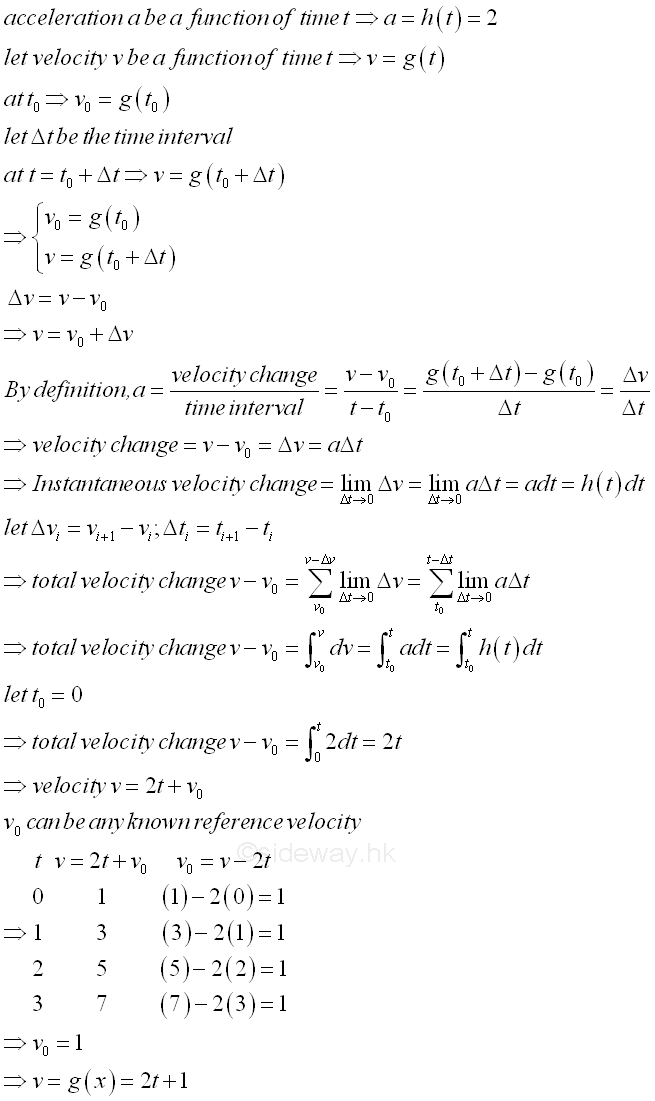 acceleration a be a function of time t ⇒ a = h(t) = 2
let velocity v be a function of time t ⇒ v = g(t)
at t₀ ⇒ v₀ = g(t₀)
let Δt be the time interval
at t = t₀ + Δt ⇒ v = g(t₀ + Δt)
⇒ { v₀ = g(t₀)
v = g(t₀ + Δt)
Δv = v − v₀
⇒ v = v₀ + Δv
By definition, a = velocity change / time interval = (v − v₀) / (t − t₀) = (g(t₀ + Δt) − g(t₀)) / Δt = Δv / Δt
⇒ velocity change = v − v₀ = Δv = aΔt
⇒ Instantaneous velocity change = lim_{Δt→0} Δv = lim_{Δt→0} aΔt = adt = h(t)dt
let Δvᵢ = vᵢ₊₁ − vᵢ; Δtᵢ = tᵢ₊₁ − tᵢ
⇒ total velocity change v − v₀ = ∑_{v₀}^{v−Δv} lim_{Δt→0} Δv = ∑_{t₀}^{t−Δt} lim_{Δt→0} aΔt
⇒ total velocity change v − v₀ = ∫_{v₀}^{v} dv = ∫_{t₀}^{t} adt = ∫_{t₀}^{t} h(t)dt
let t₀ = 0
⇒ total velocity change v − v₀ = ∫_{0}^{t} 2dt = 2t
⇒ velocity v = 2t + v₀
v₀ can be any known reference velocity
©sideway.hk
t v = 2t + v₀ v₀ = v − 2t
0 1 (1) − 2(0) = 1
⇒ 1 3 (3) − 2(1) = 1
2 5 (5) − 2(2) = 1
3 7 (7) − 2(3) = 1
⇒ v₀ = 1
⇒ v = g(x) = 2t + 1